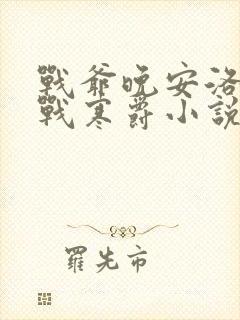 戰爺晚安洛
戰寒爵小說
羅先市